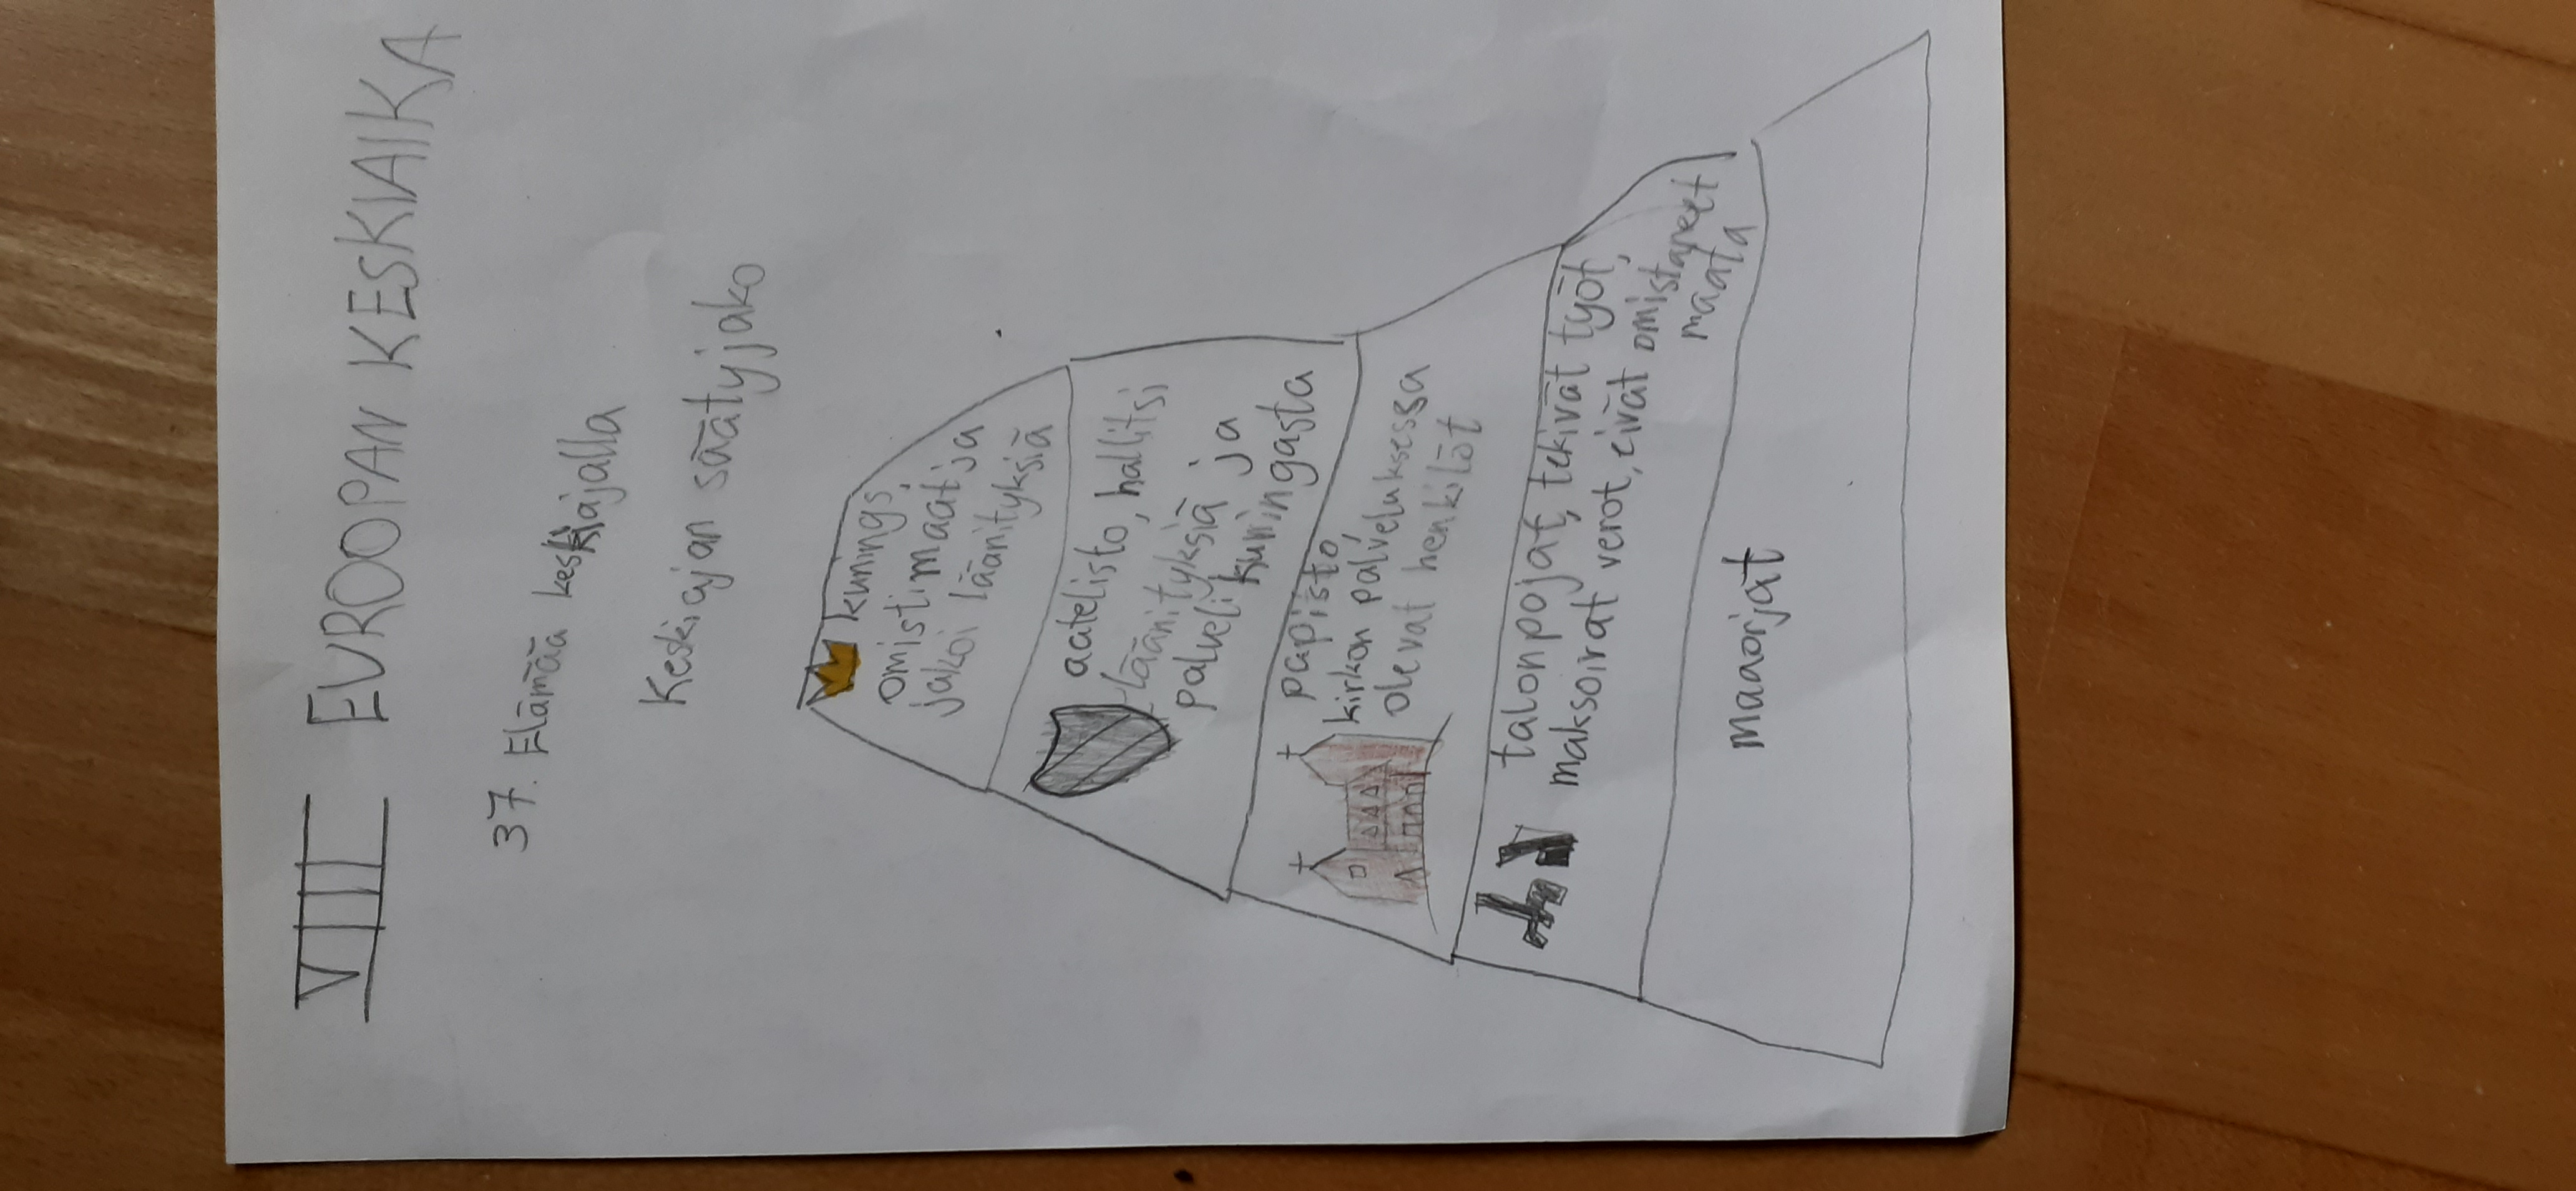 VIII EUROOPAN KESKIAIKA
37. Elämää keskiajalla
Keskiajan säätyjako
kunings,
omisti maat ja
jakoi läänityksiä
aatelisto, hallitsi
läänityksiä ja
palveli kuningasta
papisto,
kirkon palveluksessa
olevat henkilöt
talonpojat, tekivät työt,
maksoivat verot, eivät omistaneet
maata
maaorjat